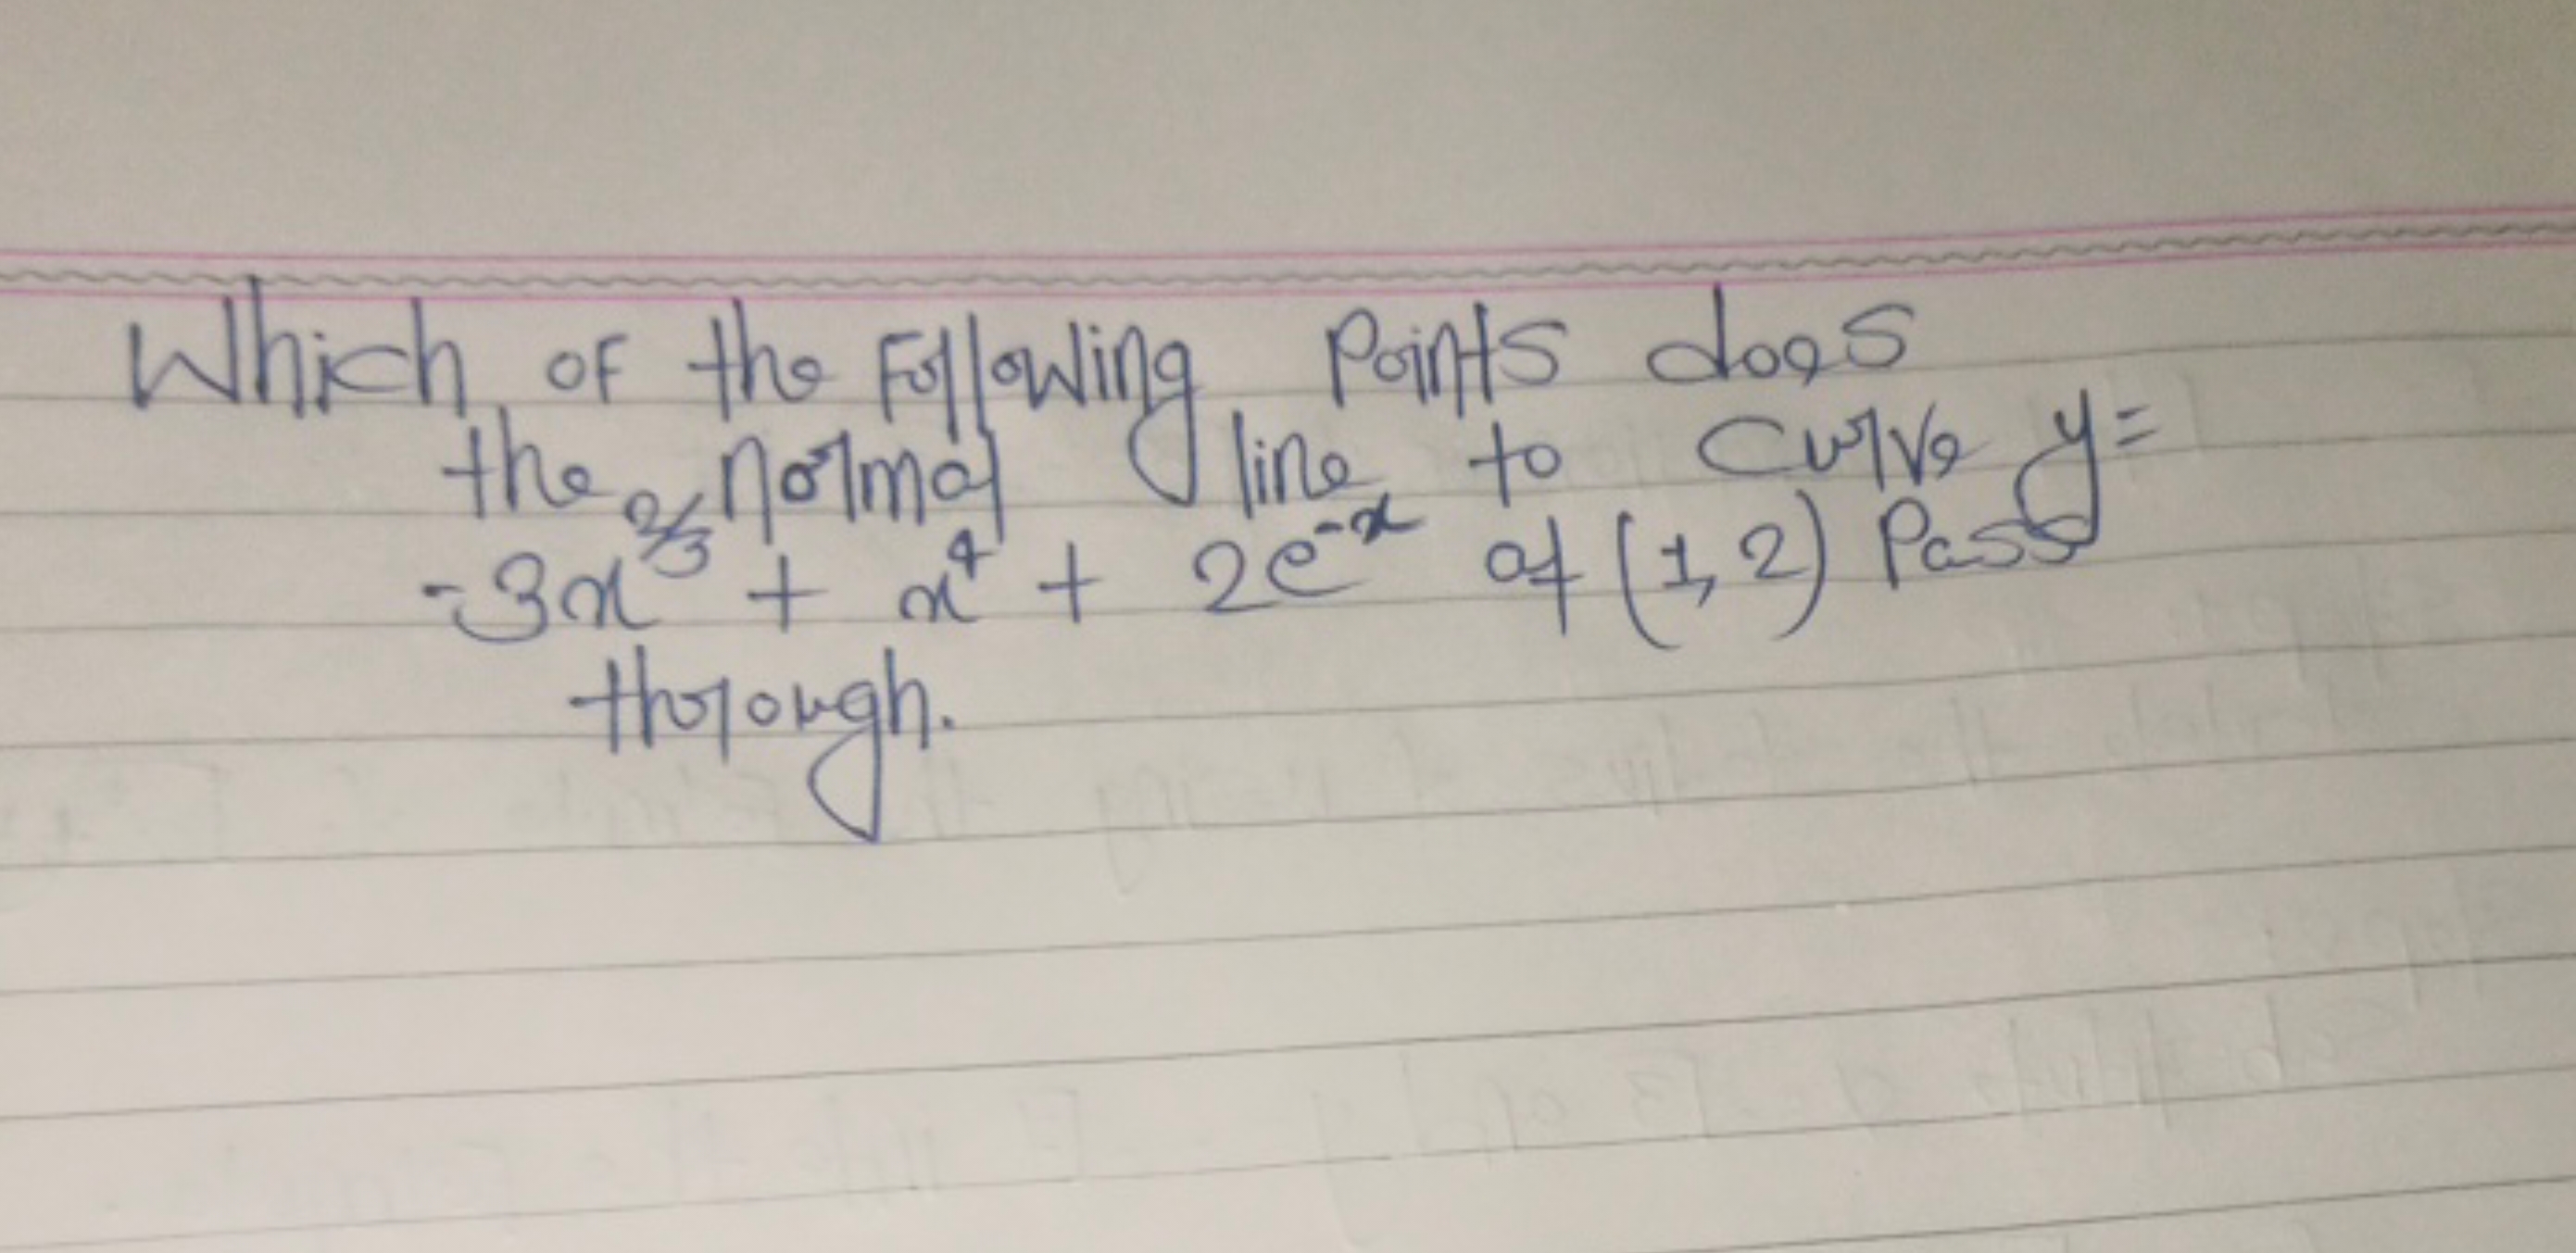 Which of the Following Points does
the normal line to curve y=
-3x^2/3 + x^4 + 2e^-x at (1,2) Pass
through.